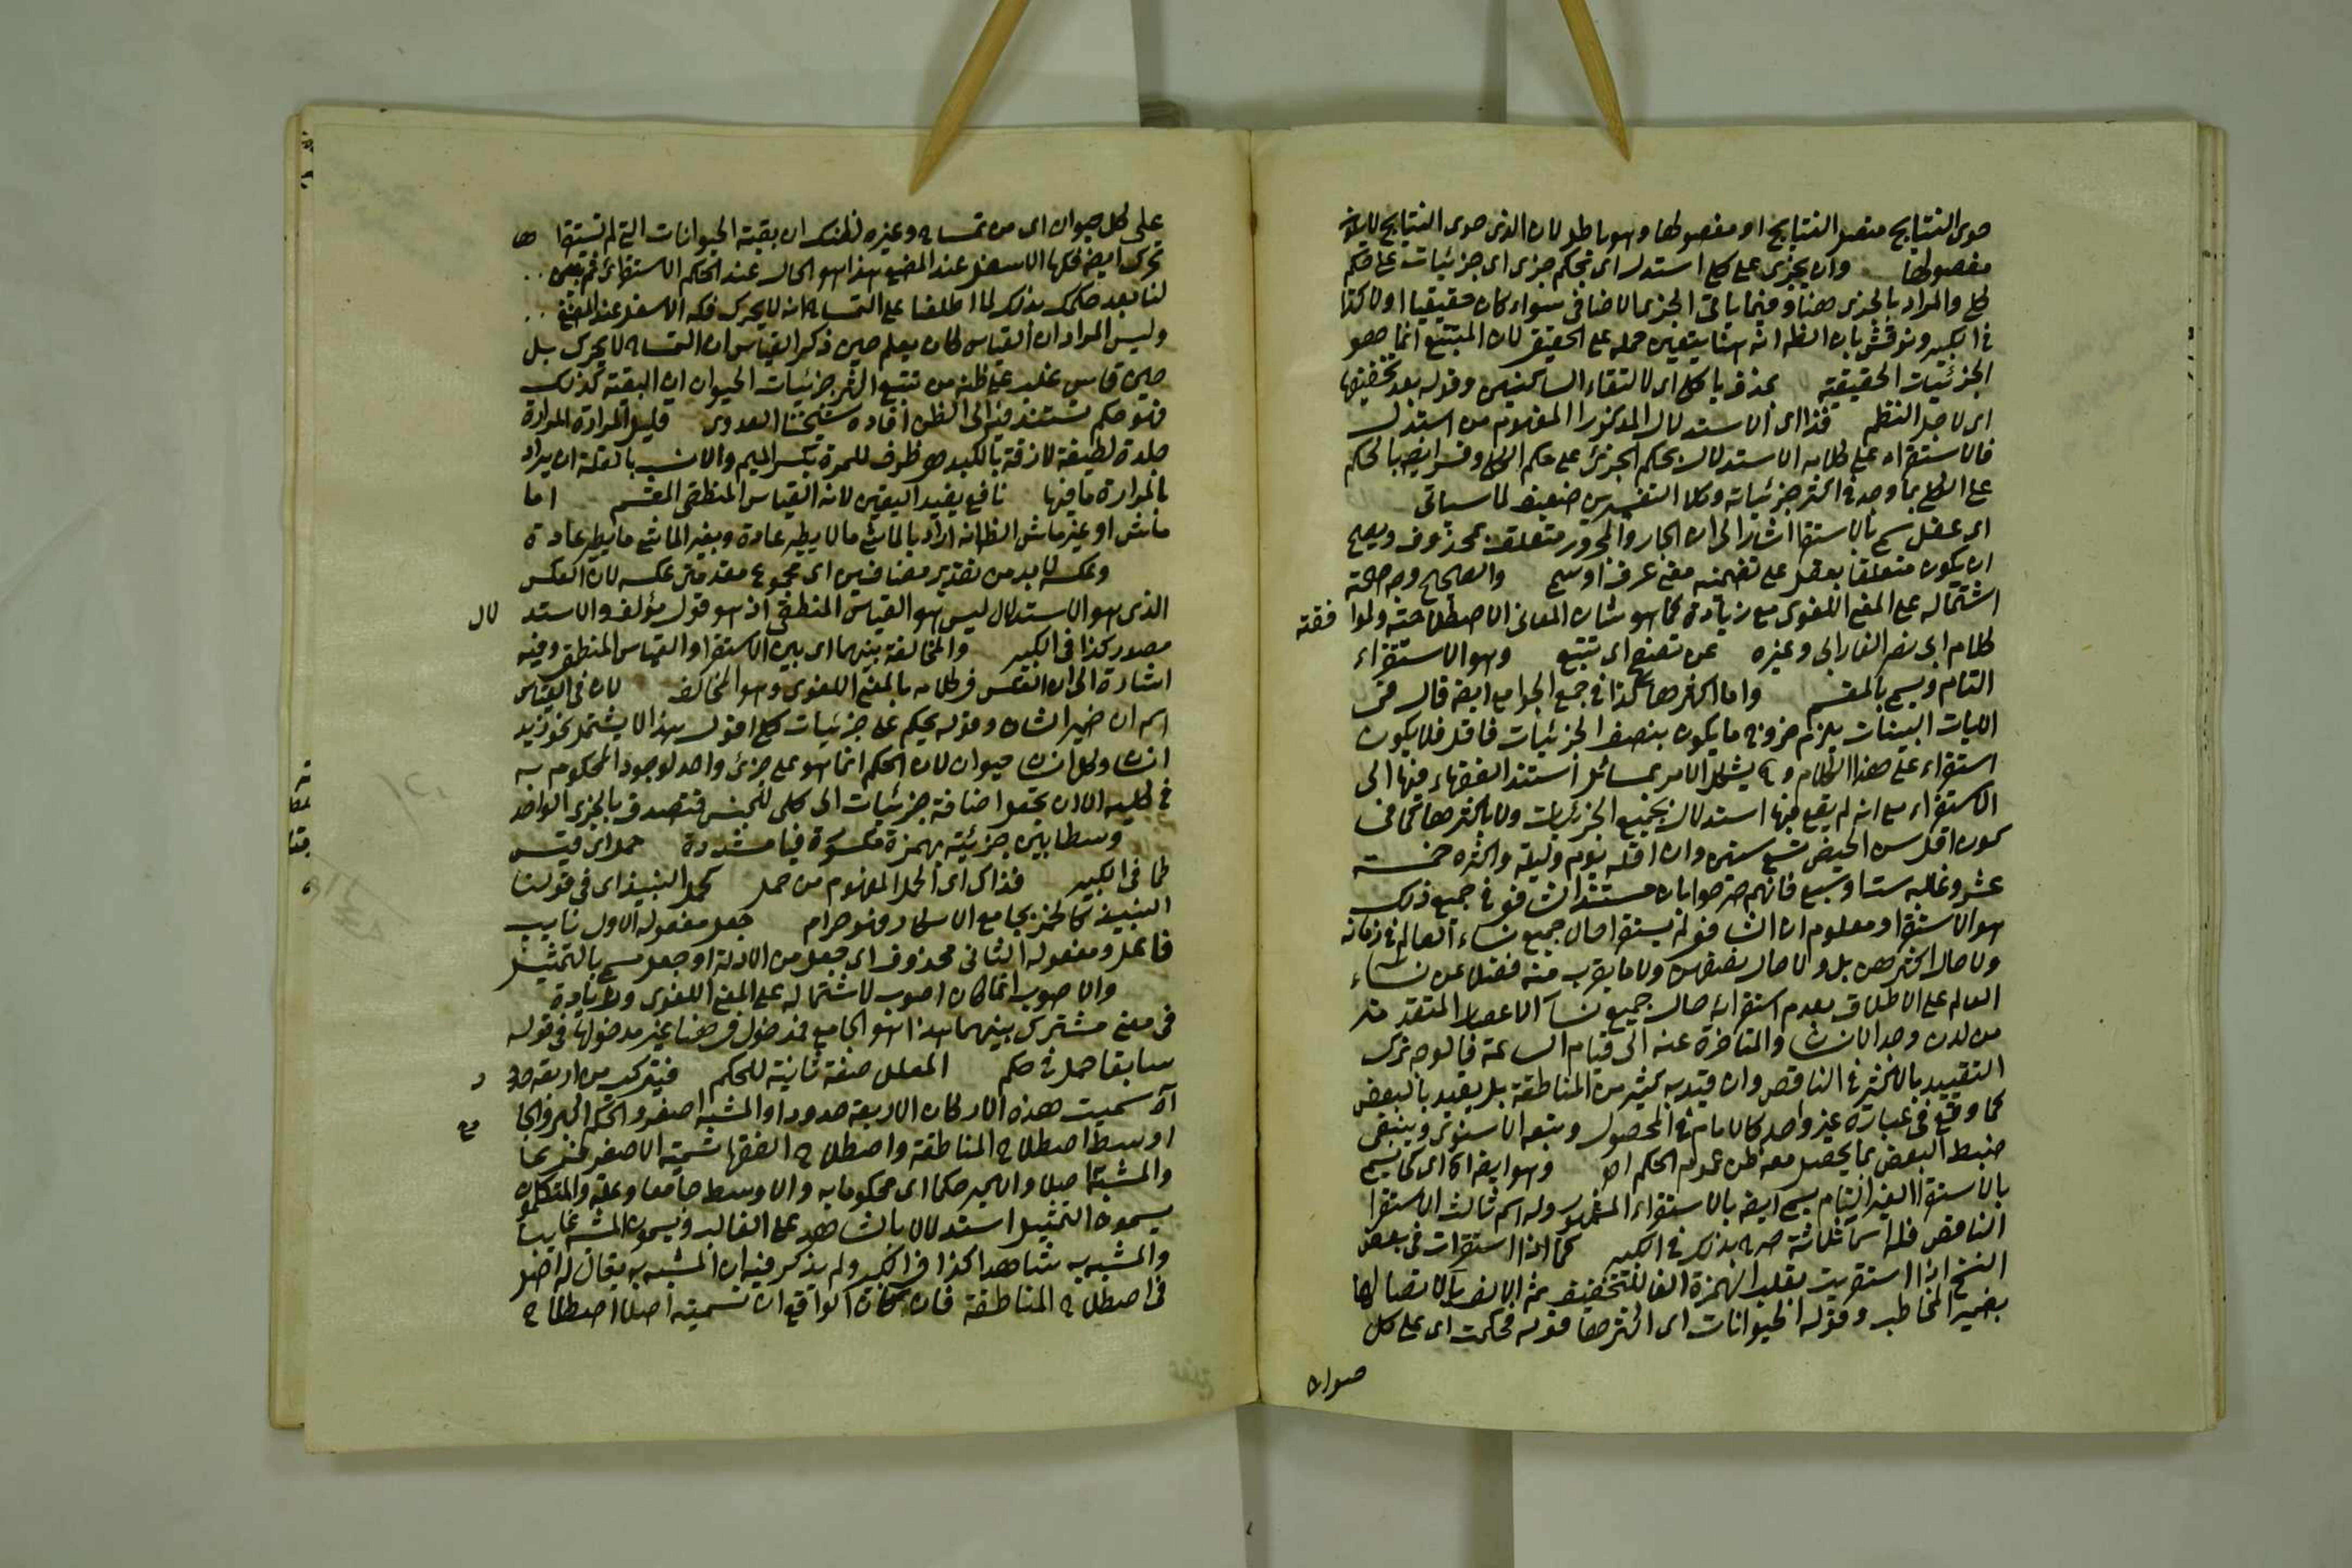 حوى النتايج متصل النتايج او مفصولها وهو باطل لان الذى حوى النتايج لا يكون
مفصولها وان بجزى على كل استدل اى بحكم جزى اى جزئيات على حكم
كلى والمراد بالجزى هنا وفيما ياتى الجزى الاضافى سواء كان حقيقيا او لا كذا
فى الكبير ونوقش بان الظ انه هنا يتعين حمله على الحقيقى لان المتتبع انما هو
الجزئيات الحقيقية بحذف ياء كلى اى لالتقاء الساكنين وقوله بعد تخفيفها
اى لاجل النظم فذا اى الاستدلال المذكور المفهوم من استدل
فالاستقراء على كلامه الاستدلال بحكم الجزئى على حكم الكلى وفسر ايضا بالحكم
على الكلى بما وجد فى اكثر جزئياته وكلا التفسيرين ضعيف لما سياتى
اى عقل سمى بالاستقرا اشار الى ان الجار والمجرور متعلق بمحذوف ويصح
ان يكون متعلقا بعقل على تضمنه معنى عرف او سمى والصحيح وجه صحته
اشتماله على المعنى اللغوى مع زيادة كما هو شان المعانى الاصطلاحية ولموافقته
كلام ابى نصر الفارابى وغيره عن تصفح اى تتبع وهو الاستقراء
التام ويسمى بالمقسم واما اكثرها كذا فى جمع الجوامع ايضا قال فى
الايات البينات يلزم خروج ما يكون بنصف الجزئيات فاقل فلا يكون
استقراء على هذا الكلام و يشكل الامر بمسائل استند الفقهاء فيها الى
الاستقراء مع انه لم يقع فيها استدلال بجميع الجزئيات ولا باكثرها كما فى
كون اقل سن الحيض تسع سنين وان اقله يوم وليلة واكثره خمسة
عشر وغالبه ست او سبع فانهم صرحوا بان مستند الشافعى فى جميع ذلك
هو الاستقرا ومعلوم ان الشافعى لم يستقرا حال جميع نساء العالم فى زمانه
ولا حال اكثرهن بل ولا حال نصفهن ولا ما يقرب منه فضلا عن نساء
العالم على الاطلاق بعدم استقرائه حال جميع نسآء الاعصار المتقدمة
من لدن وجد الانسان والمتاخرة عنه الى قيام الساعة فالوجه ترك
التقييد بالاكثر فى الناقص وان قيد به كثير من المناطقة بل يقيد بالبعض
كما وقع فى عبارة غير واحد كالامام فى المحصول وتبعه الاسنوى وينبغى
ضبط البعض بما يحصل معه ظن عموم الحكم اه وهو ايضا اى كما يسمى
بالاستقرا الغير التام يسمى ايضا بالاستقراء المشهور وله اسم ثالث الاستقرا
الناقص فله اسما ثلاثة صرح بذلك فى الكبير كما اذا استقرات فى بعض
النسخ اذا استقريت بقلب الهمزة الفا للتخفيف ثم الالف يآء لاتصالها
بضمير المخاطب وقوله الحيوانات اى اكثرها قوله فحكمت اى على كل
حيوان
على كل حيوان اى من تمساح وغيره لظنك ان بقية الحيوانات التى لم تستقراها
تحرك ايضا فكها الاسفل عند المضغ هذا هو الحال عند الحكم الاستقرائى ثم
لنا بعد حكمك بذلك لما اطلعنا على التمساح انه لا يحرك فكه الاسفل عند المضغ
وليس المراد ان القياس كان يعلم حين ذكر القياس ان التمساح لا يحرك بل
حين قاس غلب على ظنه من تتبع اكثر جزئيات الحيوان ان البقية كذلك
فهو حكم يستند فيه الى الظن افاده شيخنا العدوى قليل المرارة المرارة
جلدة لطيفة لازقة بالكبد هو ظرف للمرة بكسر الميم والانسب بالقلة ان يراد
بالمرارة ما فيها نافع يفيد اليقين لانه القياس المنطقى المقسم اما
ماش او غير ماش الظ انه اراد بالماشى ما لا يطير عادة وبغير الماشى ما يطير عادة
وعكسه لا بد من تقدير مضافين اى مجموع مقدمتى عكسه لان العكس
الذى هو الاستدلال ليس هو القياس المنطقى اذ هو قول مؤلف والاستدلال
مصدر كذا فى الكبير والمخالفة بينهما اى بين الاستقرا والقياس المنطقى وفيه
اشارة الى ان العكس فى كلامه بالمعنى اللغوى وهو المخالفة لان فى القياس
اسم ان ضمير الشان وقوله يحكم على جزئيات كلى اقول هذا لا يشتمل نحو زيد
انسان وكل انسان حيوان لان الحكم انما هو على جزئى واحد لوجود المحكوم به
فى كليه الا ان تجعل اضافة جزئيات الى كلى للجنس فتصدق بالجزى الواحد
وسطا بين جزئية بهمزة مكسورة فيا مشددة حمل اى قيس
كما فى الكبير فذاك اى الحمل المفهوم من حمل كحمل النبيذ اى فى قولنا
النبيذ كالخمر بجامع الاسكار فهو حرام جعل مفعوله الاول نايب
فاعل ومفعوله الثانى محذوف اى جعل من الادلة او جعل مسمى بالتمثيل
والاصوب انما كان اصوب لاشتماله على المعنى اللغوى وزيادة
فى معنى مشترك بينهما هذا هو الجامع فمدخول فى هنا غير مدخولها فى قوله
سابقا حمل فى حكم المعلل صفة ثانية للحكم فيتركب من اربعة حدود
آه سميت هذه الاركان الاربعة حدودا والمشبه اصغر والحكم اكبر والجامع
اوسط اصطلاح المناطقة واصطلاح الفقها تسمية الاصغر فرعا
والمشبه اصلا والاكبر حكما اى محكوما به والاوسط جامعا وعلة والمتكلمون
يسمون التمثيل استدلالا بالشاهد على الغائب ويسمون المشبه غايبا
والمشبه به شاهدا كذا فى الكبير ولم يذكر فيه ان المشبه به يقال له اصل
فى اصطلاح المناطقة فان كان الواقع ان تسميته اصلا اصطلاح